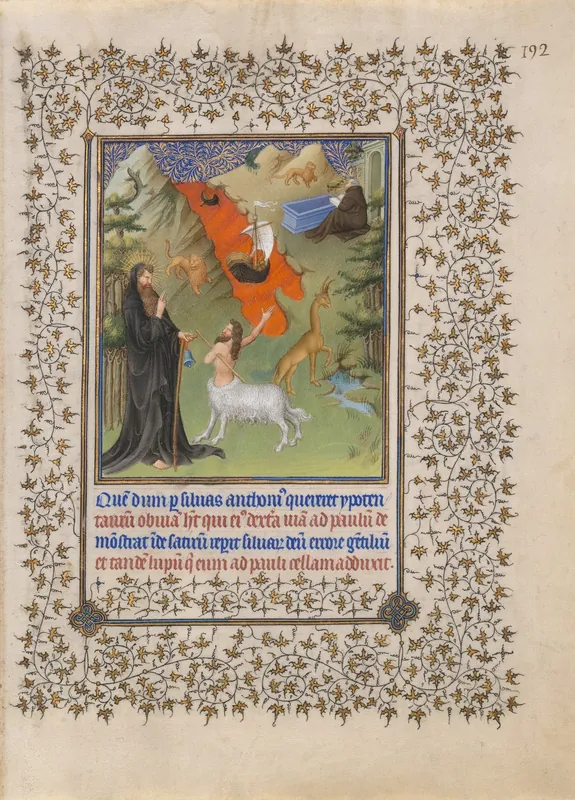 192
Que dum p silvas anthoni' quereret ypocen
taurū obviā ht qui ei' dextā viā ad paulū de
mōstrat īde satirū repit silvar deū errore gētiliū
et tandē lupū q eum ad pauli cellam adduxit.